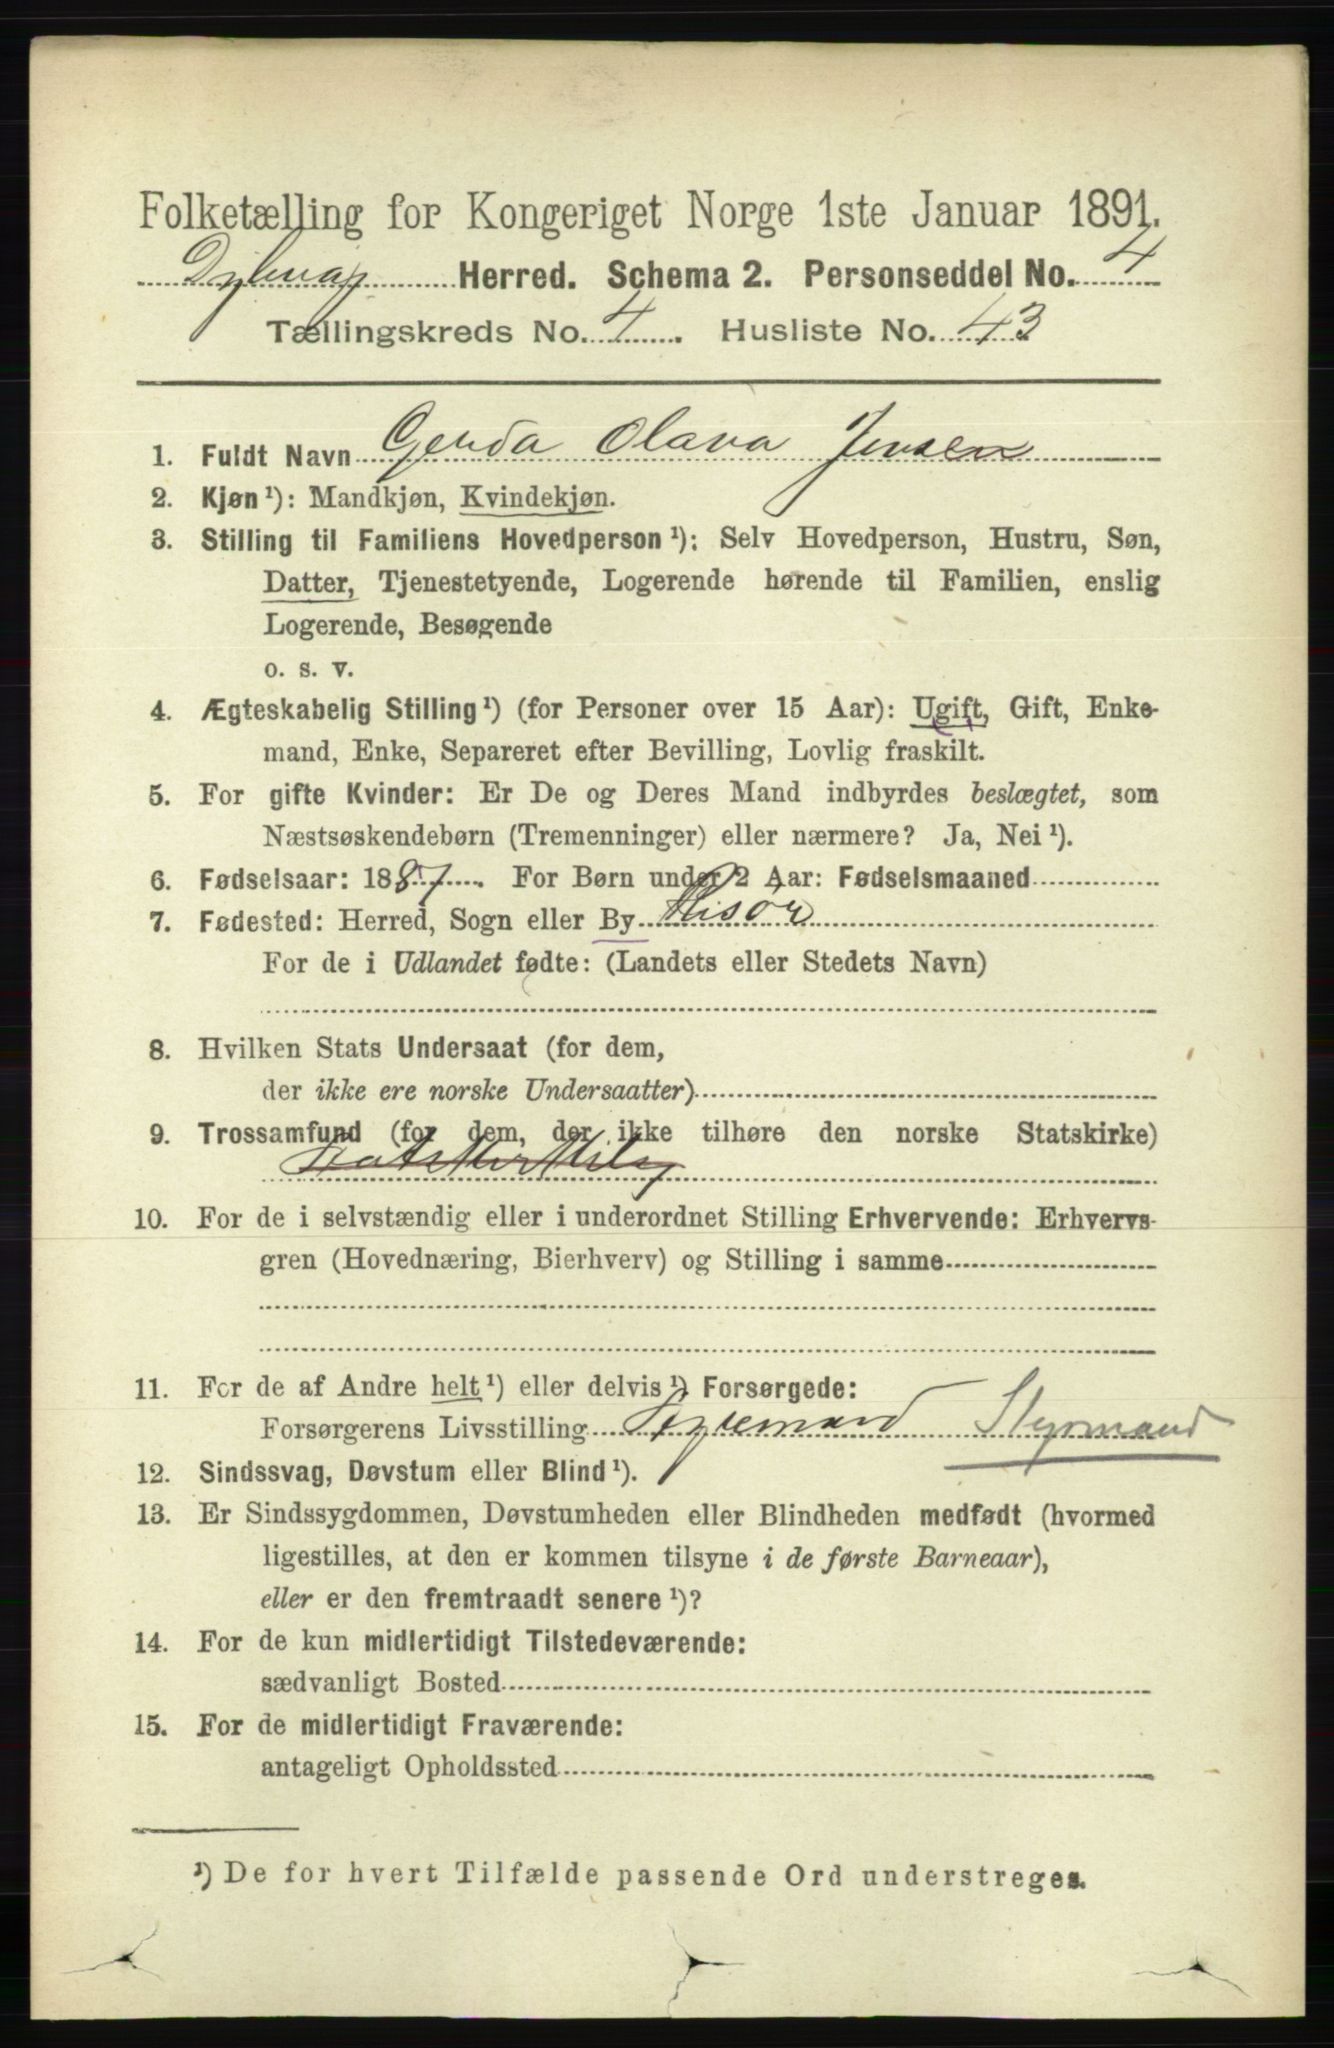 Folketælling for Kongeriget Norge 1ste Januar 1891.
Dybvaag Herred. Schema 2. Personseddel No. 4
Tællingskreds No. 4. Husliste No. 43
1. Fuldt Navn Gerda Olava Jensen
2. Kjøn¹): Mandkjøn, Kvindekjøn.
3. Stilling til Familiens Hovedperson¹): Selv Hovedperson, Hustru, Søn,
Datter, Tjenestetyende, Logerende hørende til Familien, enslig
Logerende, Besøgende
o. s. v.
4. Ægteskabelig Stilling¹) (for Personer over 15 Aar): Ugift, Gift, Enke-
mand, Enke, Separeret efter Bevilling, Lovlig fraskilt.
5. For gifte Kvinder: Er De og Deres Mand indbyrdes beslægtet, som
Næstsøskendebørn (Tremenninger) eller nærmere? Ja, Nei¹).
6. Fødselsaar: 1887. For Børn under 2 Aar: Fødselsmaaned
7. Fødested: Herred, Sogn eller By
For de i Udlandet fødte: (Landets eller Stedets Navn)
8. Hvilken Stats Undersaat (for dem,
der ikke ere norske Undersaatter)
9. Trossamfund (for dem, der ikke tilhøre den norske Statskirke)
10. For de i selvstændig eller i underordnet Stilling Erhvervende: Erhvervs-
gren (Hovednæring, Bierhverv) og Stilling i samme
11. For de af Andre helt¹) eller delvis¹) Forsørgede:
Forsørgerens Livsstilling Styremand Styrmand
12. Sindssvag, Døvstum eller Blind¹).
13. Er Sindssygdommen, Døvstumheden eller Blindheden medfødt (hvormed
ligestilles, at den er kommen tilsyne i de første Barneaar),
eller er den fremtraadt senere¹)?
14. For de kun midlertidigt Tilstedeværende:
sædvanligt Bosted
15. For de midlertidigt Fraværende:
antageligt Opholdssted
¹) De for hvert Tilfælde passende Ord understreges.